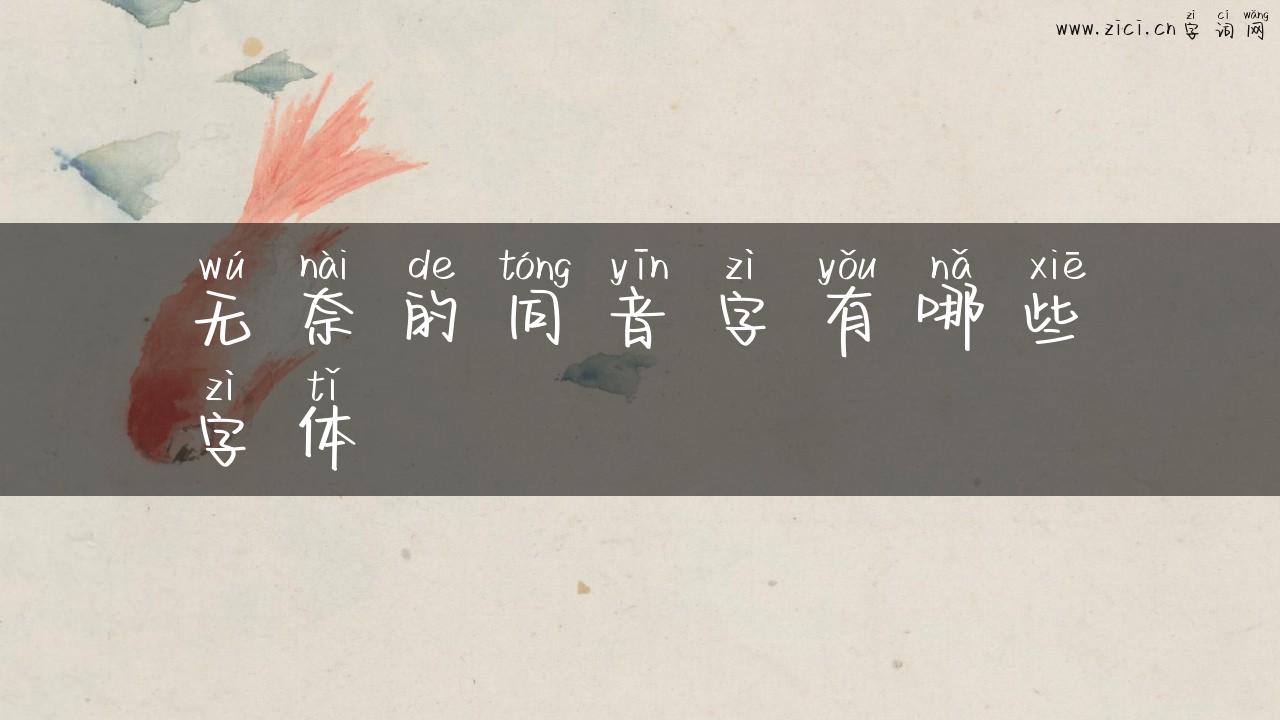 zì cí wǎng
www.zici.cn 字词网
wú nài de tóng yīn zì yǒu nǎ xiē
无奈的同音字有哪些
zì tǐ
字体